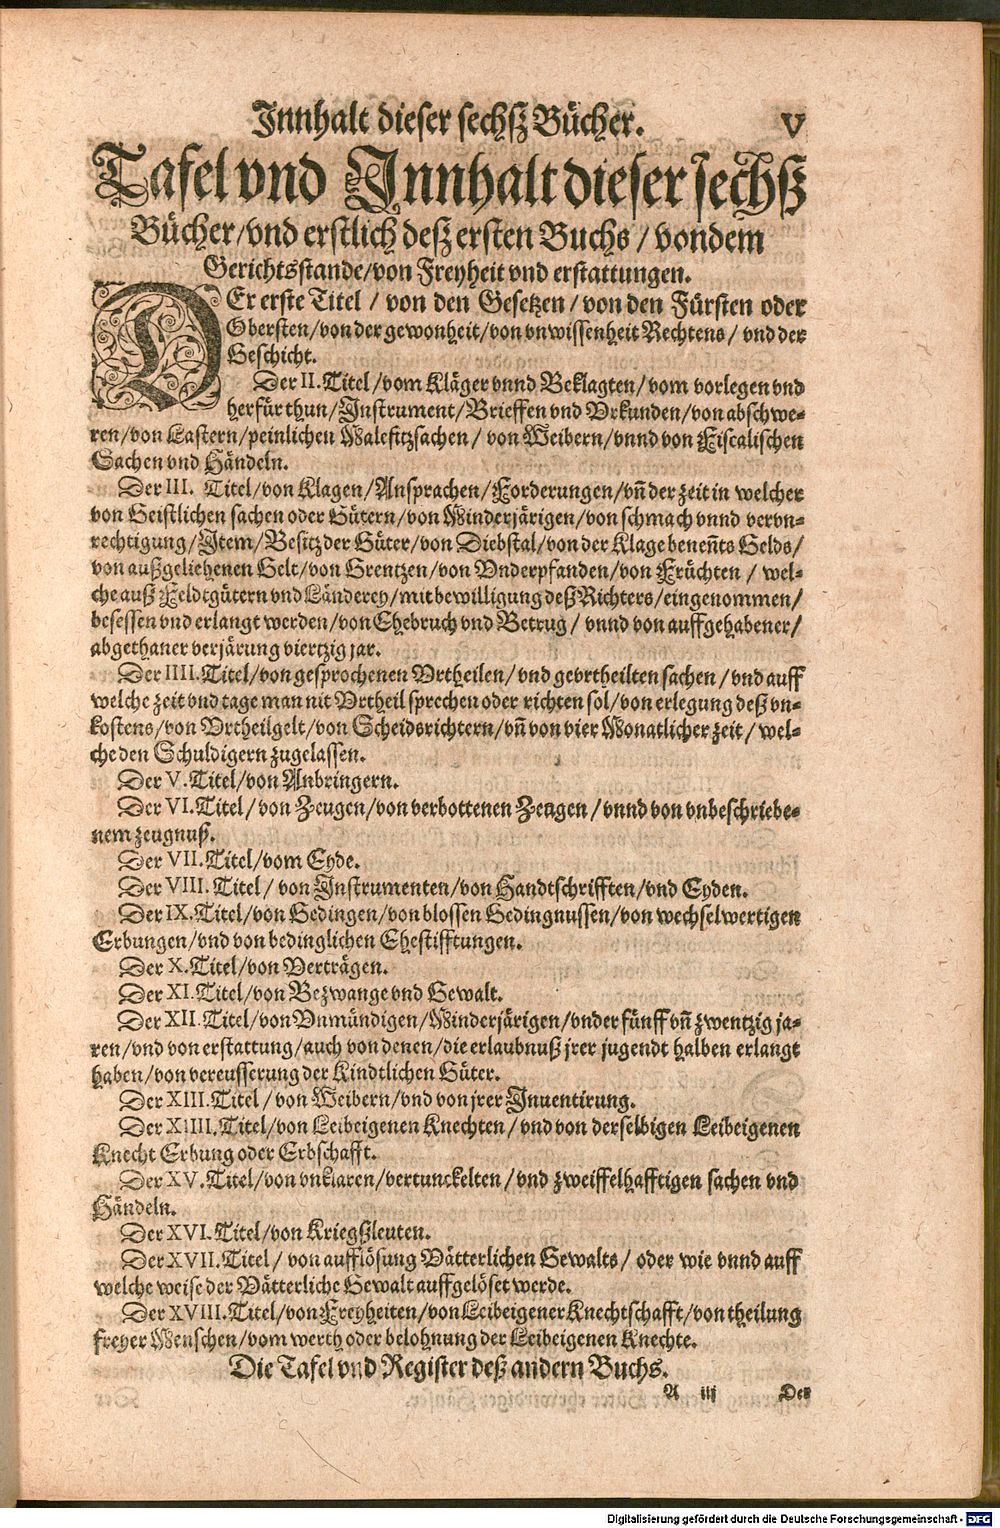 Innhalt dieser sechsz Bücher. V
Tafel vnd Innhalt dieser sechsz
Bücher/vnd erstlich desz ersten Buchs/vondem
Gerichtsstande/von Freyheit vnd erstattungen.
DEr erste Titel/von den Gesetzen/von den Fürsten oder
Obersten/von der gewonheit/von vnwissenheit Rechtens/vnd der
Geschicht.
Der II. Titel/vom Kläger vnnd Beklagten/vom vorlegen vnd
herfür thun/Instrument/Brieffen vnd Vrkunden/von abschwe-
ren/von Lastern/peinlichen Malefitzsachen/von Weibern/vnnd von Fiscalischen
Sachen vnd Händeln.
Der III. Titel/von Klagen/Ansprachen/Forderungen/vñ der zeit in welcher
von Geistlichen sachen oder Gütern/von Minderjärigen/von schmach vnnd vervn-
rechtigung/Item/Besitz der Güter/von Diebstal/von der Klage beneñts Gelds/
von auszgeliehenen Gelt/von Grentzen/von Vnderpfanden/von Früchten/wel-
che ausz Feldtgütern vnd Länderey/mit bewilligung desz Richters/eingenommen/
besessen vnd erlangt werden/von Ehebruch vnd Betrug/vnnd von auffgehabener/
abgethaner verjärung viertzig jar.
Der IIII. Titel/von gesprochenen Vrtheilen/vnd gevrtheilten sachen/vnd auff
welche zeit vnd tage man nit Vrtheil sprechen oder richten sol/von erlegung desz vn-
kostens/von Vrtheilgelt/von Scheidsrichtern/vñ von vier Monatlicher zeit/wel-
che den Schuldigern zugelassen.
Der V. Titel/von Anbringern.
Der VI. Titel/von Zeugen/von verbottenen Zeugen/vnnd von vnbeschriebe-
nem zeugnusz.
Der VII. Titel/vom Eyde.
Der VIII. Titel/von Instrumenten/von Handtschrifften/vnd Eyden.
Der IX. Titel/von Gedingen/von blossen Gedingnussen/von wechselwertigen
Erbungen/vnd von bedinglichen Ehestifftungen.
Der X. Titel/von Verträgen.
Der XI. Titel/von Bezwange vnd Gewalt.
Der XII. Titel/von Vnmündigen/Minderjärigen/vnder fünff vñ zwentzig ja-
ren/vnd von erstattung/auch von denen/die erlaubnusz jrer jugendt halben erlangt
haben/von vereusserung der Kindtlichen Güter.
Der XIII. Titel/von Weibern/vnd von jrer Inuentirung.
Der XIIII. Titel/von Leibeigenen Knechten/vnd von derselbigen Leibeigenen
Knecht Erbung oder Erbschafft.
Der XV. Titel/von vnklaren/vertunckelten/vnd zweiffelhafftigen sachen vnd
Händeln.
Der XVI. Titel/von Kriegszleuten.
Der XVII. Titel/von aufflösung Vätterlichen Gewalts/oder wie vnnd auff
welche weise der Vätterliche Gewalt auffgelöset werde.
Der XVIII. Titel/von Freyheiten/von Leibeigener Knechtschafft/von theilung
freyer Menschen/vom werth oder belohnung der Leibeigenen Knechte.
Die Tafel vnd Register desz andern Buchs.
A iij Der
Digitalisierung gefördert durch die Deutsche Forschungsgemeinschaft - DFG